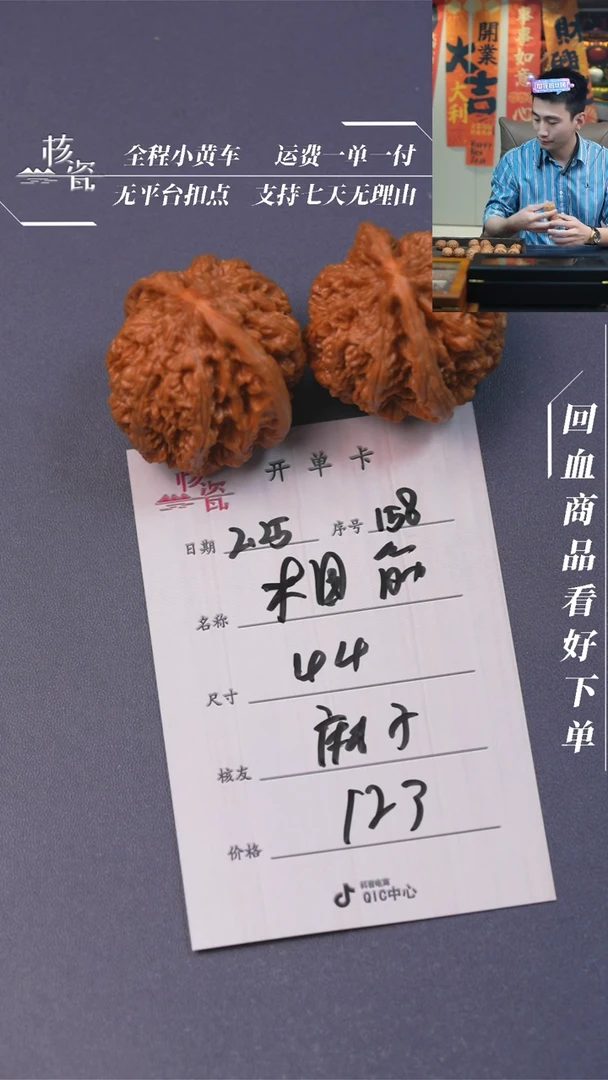 核瓷
全程小黄车 运费一单一付
无平台扣点 支持七天无理由
開業大吉
大利
事事如意
心
财
回血商品看好下单
核瓷
开单卡
日期 2.25 序号 158
名称 相 筋
尺寸 44
核友 麻子
价格 123
抖音电商
QIC中心